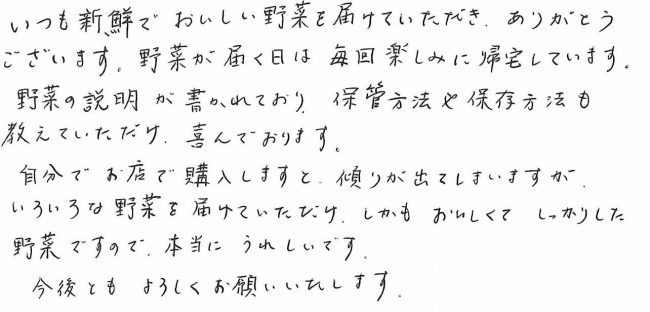 いつも新鮮でおいしい野菜を届けていただき、ありがとう
ございます。野菜が届く日は毎回楽しみに帰宅しています。
野菜の説明が書かれており、保管方法や保存方法も
教えていただけ、喜んでおります。
自分でお店で購入しますと、傾りが出てしまいますが、
いろいろな野菜を届けていただけ、しかもおいしくてしっかりした
野菜ですので、本当にうれしいです。
今後ともよろしくお願いいたします。